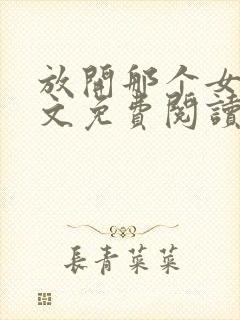 放開那个女
文免費閱讀
長青菜菜